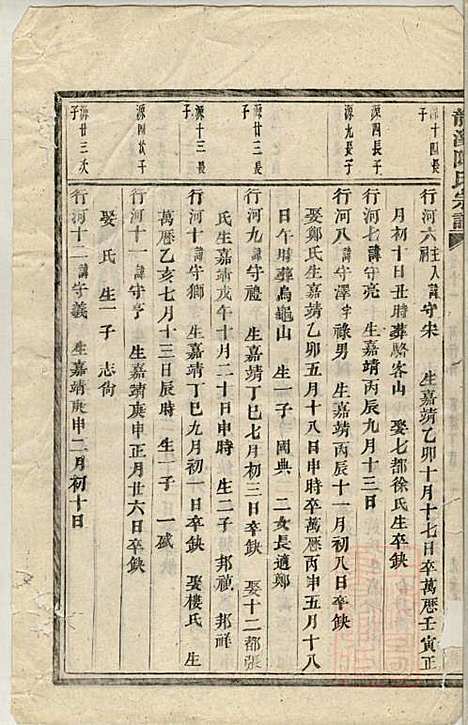 龍溪陳氏宗譜
源十四長子
行河六主人祠諱守宋 生嘉靖乙卯十月十七日卒萬歷壬寅正
月初十日丑時葬駱峯山 娶七都徐氏生卒缺
源四長子
行河七諱守亮 生嘉靖丙辰九月十三日
源九長子
行河八諱守澤字祿男 生嘉靖丙辰十一月初八日卒缺
娶鄭氏生嘉靖乙卯五月十八日申時卒萬歷丙申五月十八
日午時葬烏龜山 生一子 國典 二女長適鄭
源廿三長子
行河九諱守禮 生嘉靖丁巳七月初三日卒缺 娶十二都張
氏生嘉靖戊午十月二十日申時 生二子 邦禎 邦祥
源十三長子
行河十諱守獅 生嘉靖丁巳九月初一日卒缺 娶樓氏 生
萬歷乙亥七月十三日辰時 生一子 一盛
源四次子
行河十一諱守亨 生嘉靖庚申正月廿六日卒缺
娶 氏 生一子 志尚
源廿三次子
行河十二諱守義 生嘉靖庚申二月初十日